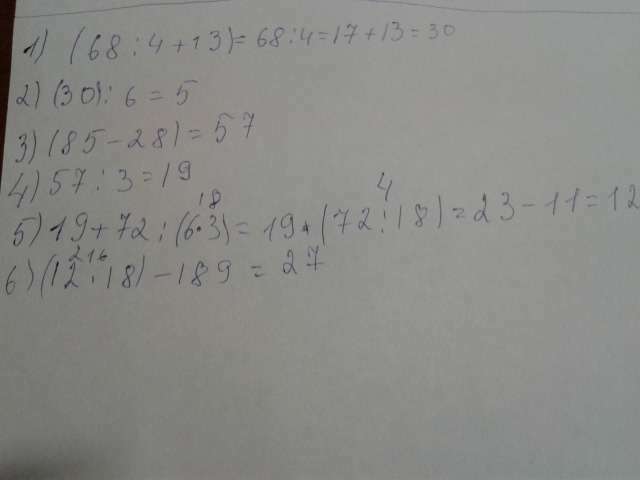 1) (68 : 4 + 13) = 68 : 4 = 17 + 13 = 30
2) (30) : 6 = 5
3) (85 - 28) = 57
4) 57 : 3 = 19
18 4
5) 19 + 72 : (6 · 3) = 19 + (72 : 18) = 23 - 11 = 12
216
6) (12 · 18) - 189 = 27